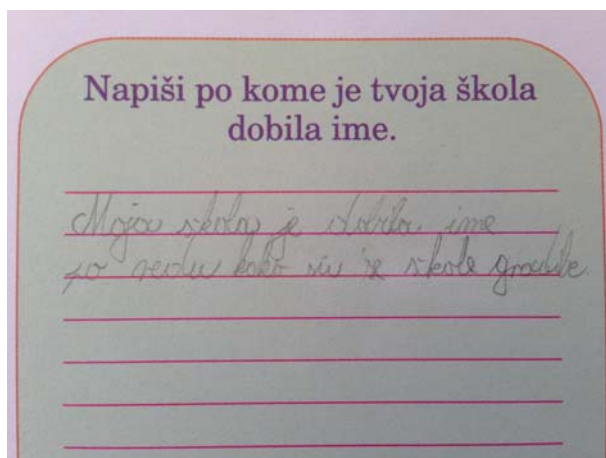 Napiši po kome je tvoja škola
dobila ime.
Moja škola je dobila ime
po redu kako su se škole gradile.